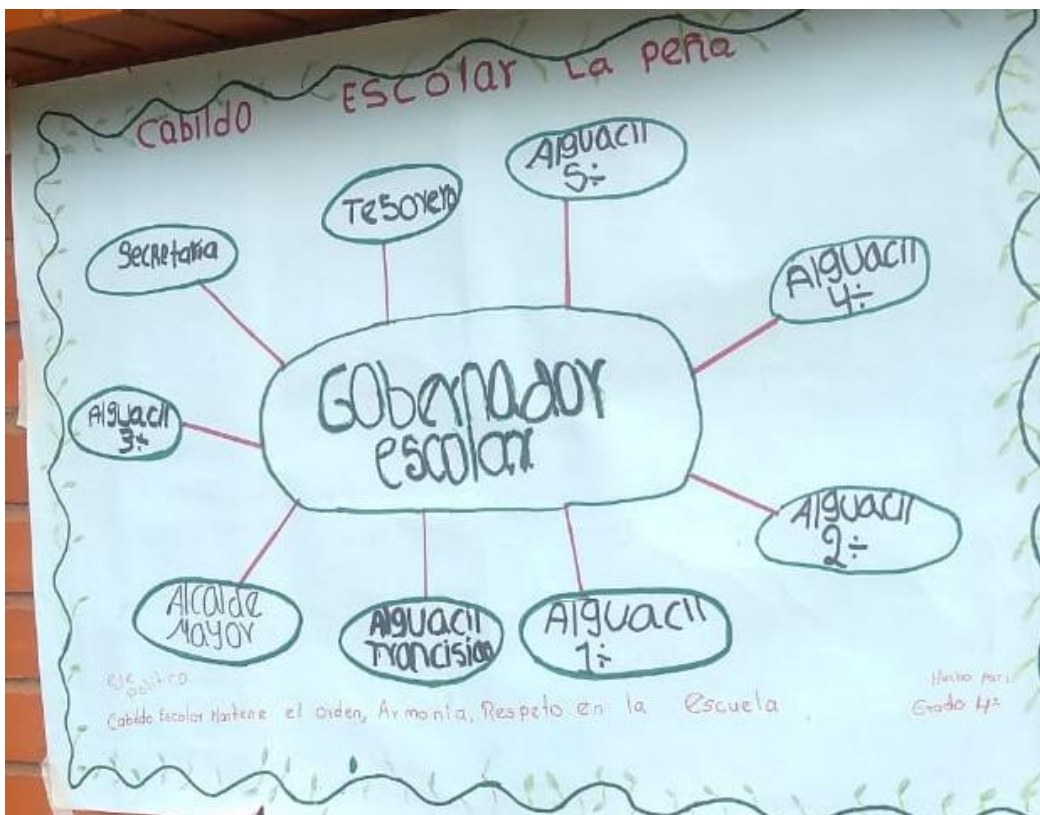 Cabildo ESCOlAR La peña
Secretaria
Tesorero
Alguacil
5÷
Alguacil
4÷
Alguacil
3÷
GObernador
escolar
Alguacil
2÷
Alcalde
Mayor
Alguacil
Trancision
Alguacil
1÷
eje
politico
Cabildo Escolar Mantene el orden, Armonia, Respeto en la Escuela
Hecho por:
Grado 4÷